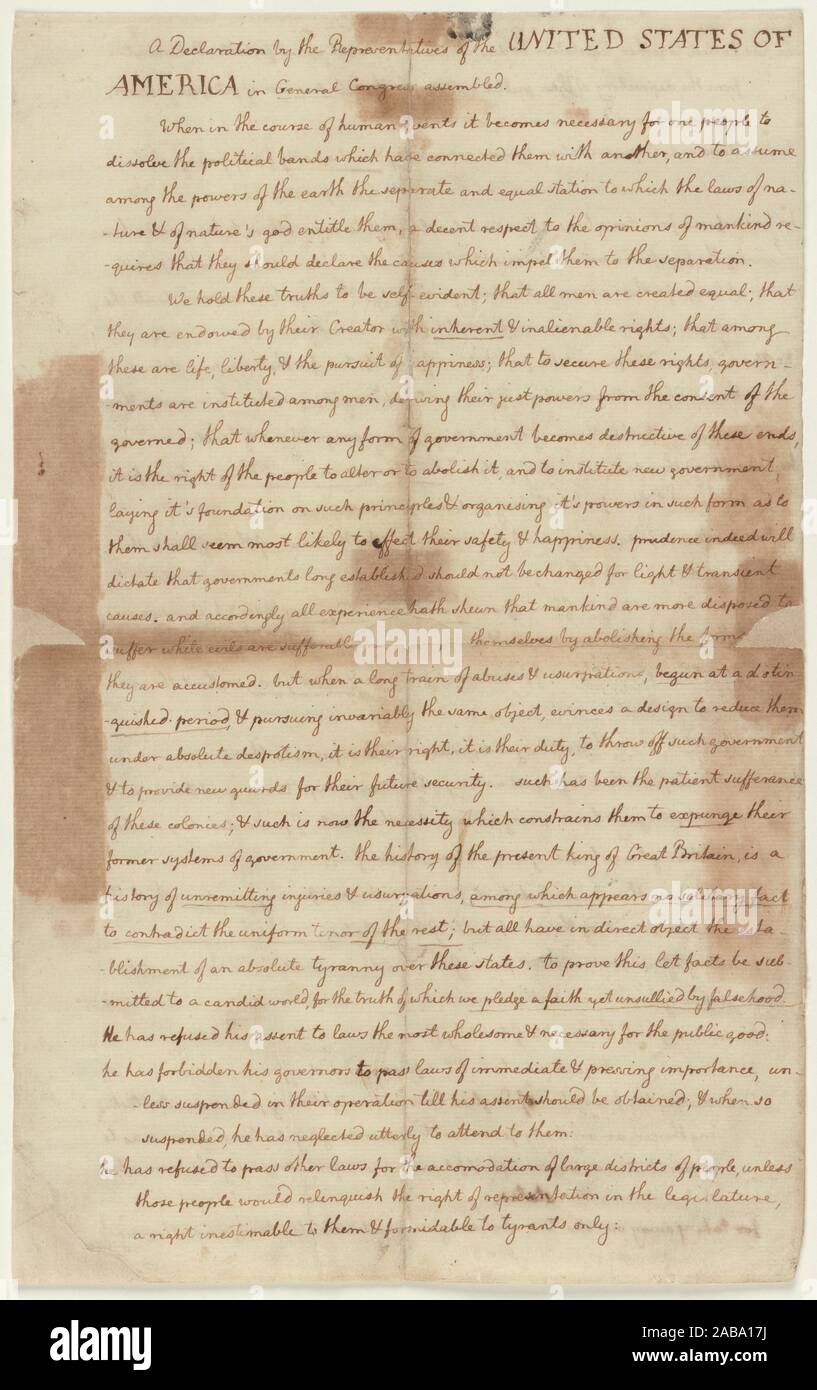 A Declaration by the Representatives of the UNITED STATES OF
AMERICA in General Congress assembled.
When in the course of human events it becomes necessary for one people to
dissolve the political bands which have connected them with another, and to assume
among the powers of the earth the separate and equal station to which the laws of na-
-ture & of nature's god entitle them, a decent respect to the opinions of mankind re-
-quires that they should declare the causes which impel them to the separation.
We hold these truths to be self-evident; that all men are created equal; that
they are endowed by their Creator with inherent & inalienable rights; that among
these are life, liberty, & the pursuit of happiness; that to secure these rights, govern-
-ments are instituted among men, deriving their just powers from the consent of the
governed; that whenever any form of government becomes destructive of these ends,
it is the right of the people to alter or to abolish it, and to institute new government,
laying it's foundation on such principles & organising it's powers in such form as to
them shall seem most likely to effect their safety & happiness. prudence indeed will
dictate that governments long established should not be changed for light & transient
causes. and accordingly all experience hath shewn that mankind are more disposed to
suffer while evils are sufferable themselves by abolishing the forms
they are accustomed. but when a long train of abuses & usurpations, begun at a distin
-guished period, & pursuing invariably the same object, evinces a design to reduce them
under absolute despotism, it is their right, it is their duty, to throw off such government
& to provide new guards for their future security. such has been the patient sufferance
of these colonies; & such is now the necessity which constrains them to expunge their
former systems of government. the history of the present king of Great Britain, is a
history of unremitting injuries & usurpations, among which appears no solitary fact
to contradict the uniform tenor of the rest; but all have in direct object the esta-
-blishment of an absolute tyranny over these states. to prove this let facts be sub-
-mitted to a candid world, for the truth of which we pledge a faith yet unsullied by falsehood.
He has refused his assent to laws the most wholesome & necessary for the public good:
he has forbidden his governors to pass laws of immediate & pressing importance, un-
-less suspended in their operation till his assent should be obtained; & when so
suspended, he has neglected utterly to attend to them:
he has refused to pass other laws for the accomodation of large districts of people, unless
those people would relinquish the right of representation in the legislature,
a right inestimable to them & formidable to tyrants only:
alamy
alamy
alamy
alamy
a
a
a
alamy
Image ID: 2ABA17J
www.alamy.com